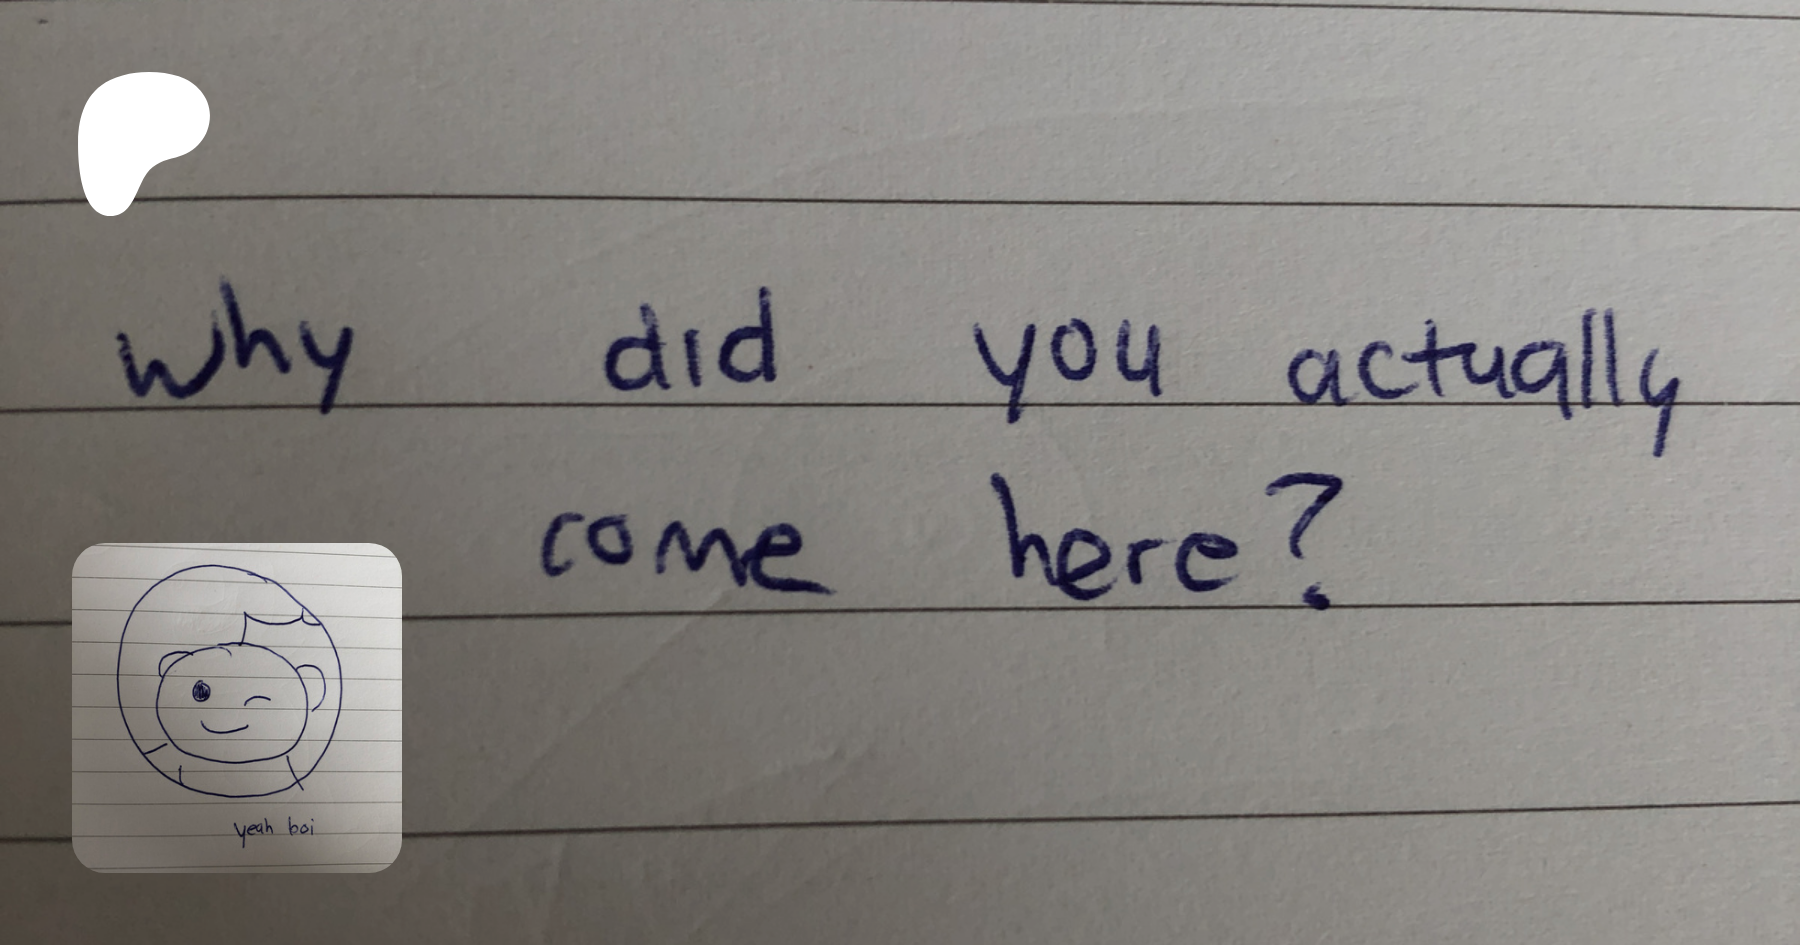 why did you actually
come here?
yeah boi